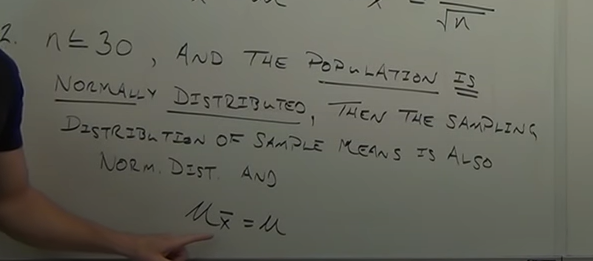 √n
2. n ≤ 30, AND THE POPULATION IS
NORMALLY DISTRIBUTED, THEN THE SAMPLING
DISTRIBUTION OF SAMPLE MEANS IS ALSO
NORM. DIST. AND
μx̄ = μ